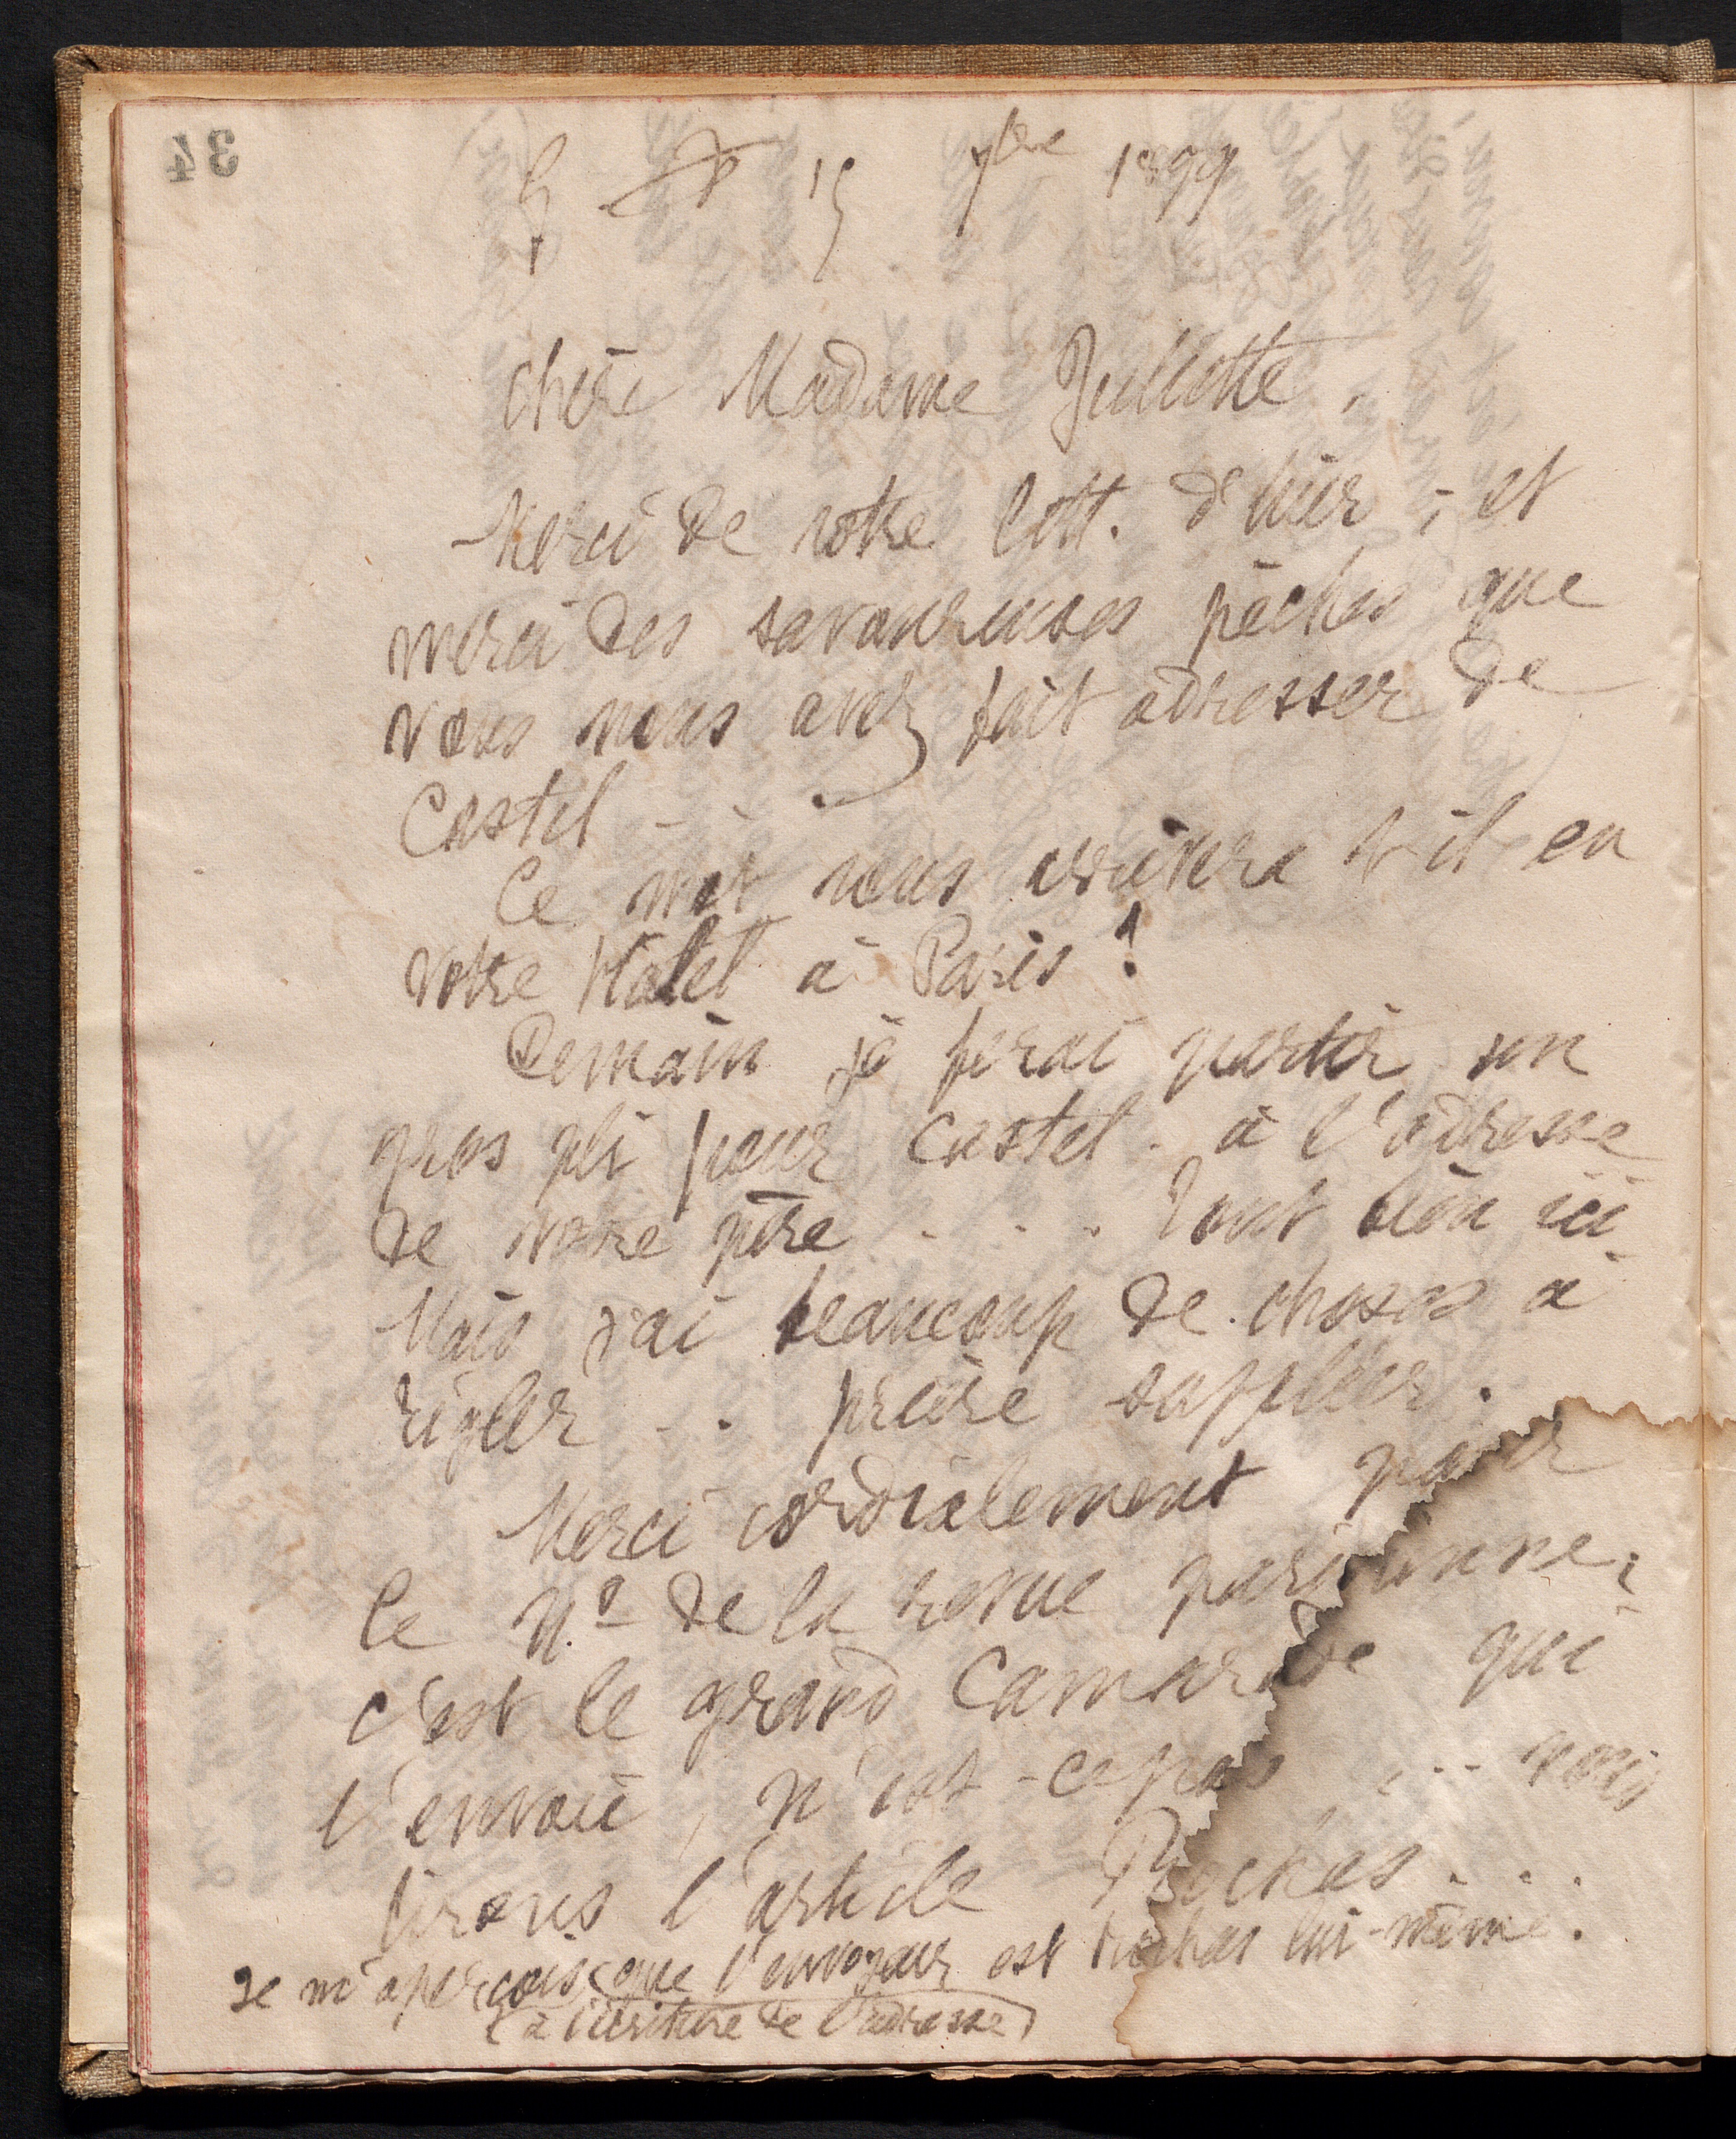 34
G 15 7bre 1899
Chère Madame Juliette,
Merci de votre lett. d'hier ; et
merci des savoureuses pêches que
vous nous avez fait adresser de
Castel - . .
Ce mot vous arrivera t-il en
votre Hôtel à Paris ?
Demain je ferai partir un
gros pli pour Castel - à l'adresse
de votre père . . . Tout bien ici -
Mais j'ai beaucoup de choses à
régler . . . prière suppléer .
Merci cordialement pour
le N.o de la revue parisienne ;
c'est le grand Camarade qui
l'envoie, n'est-ce pas ... nous
lirons l'article Rochas . . .
Je m'aperçois que l'envoyeur est Rochas lui-même .
(à l'écriture de l'adresse)